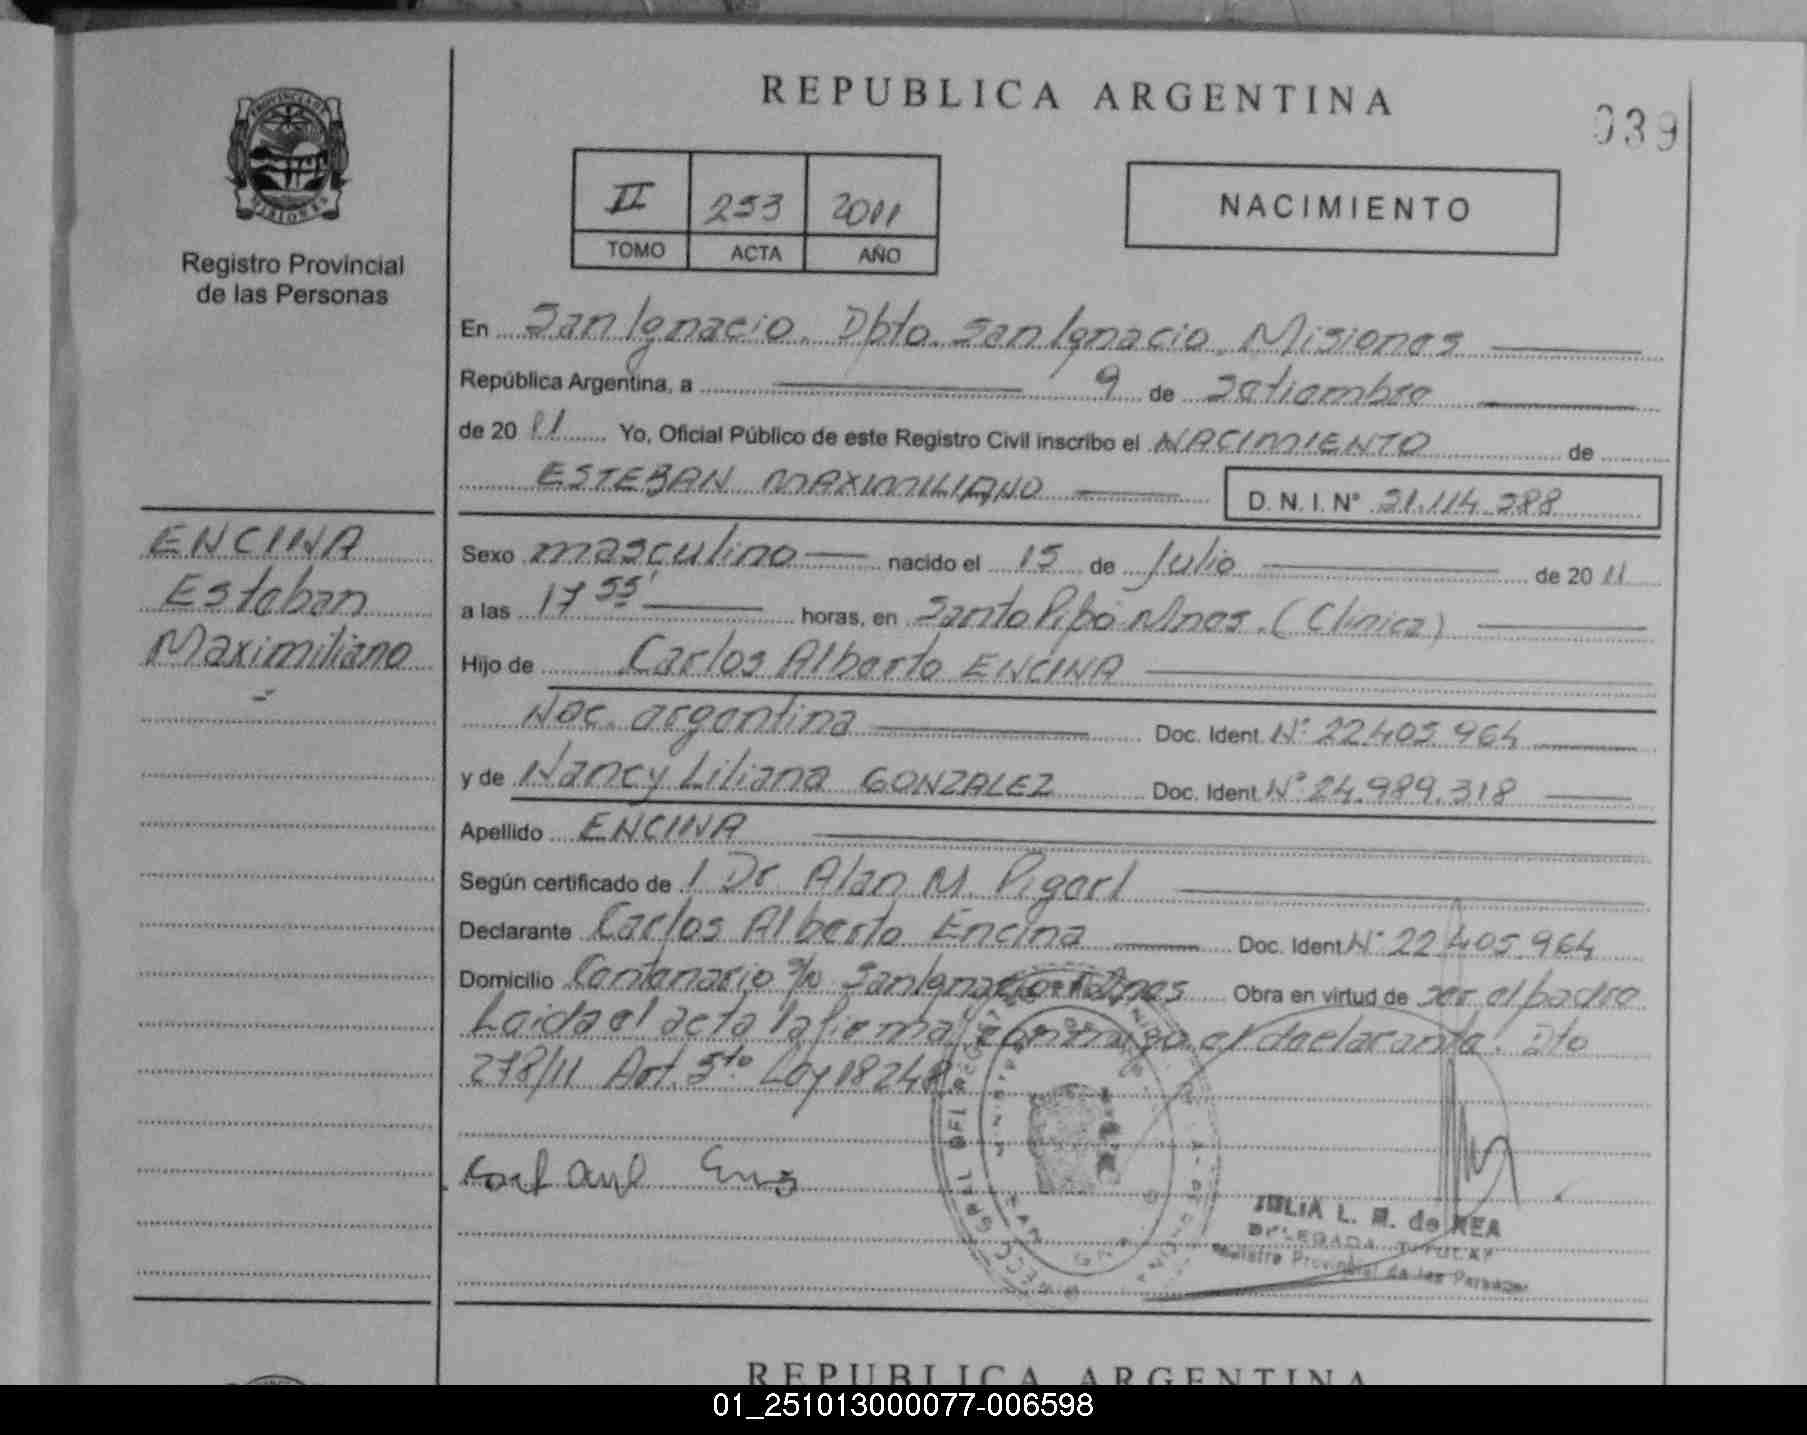 REPUBLICA ARGENTINA
039
PROVINCIA DE
MISIONES
Registro Provincial
de las Personas
II 253 2011
TOMO ACTA AÑO
NACIMIENTO
En San Ignacio. Dpto. San Ignacio. Misiones
República Argentina, a 9 de Setiembre
de 20 11 Yo, Oficial Público de este Registro Civil inscribo el NACIMIENTO de
ESTEBAN MAXIMILIANO D. N. I. N° 51.114.388
ENCINA
Esteban
Maximiliano
Sexo masculino nacido el 15 de Julio de 20 11
a las 17 55' horas, en Santo Pipó Mnes. (Clinica)
Hijo de Carlos Alberto ENCINA
Nac. argentina Doc. Ident. N° 22.405.964
y de Nancy Liliana GONZALEZ Doc. Ident. N° 24.989.318
Apellido ENCINA
Según certificado de 1 Dr Alan M.
Declarante Carlos Alberto Encina Doc. Ident. N° 22.405.964
Domicilio Centenario s/n San Ignacio Mnes Obra en virtud de ser el padre
Leida el acta la firma conmigo el declarante. Dto
278/11 Art. 5to Ley 18248
JULIA L. R. de REA
DELEGADA TITULAR
Registro Provincial de las Personas
REPUBLICA ARGENTINA
01_251013000077-006598